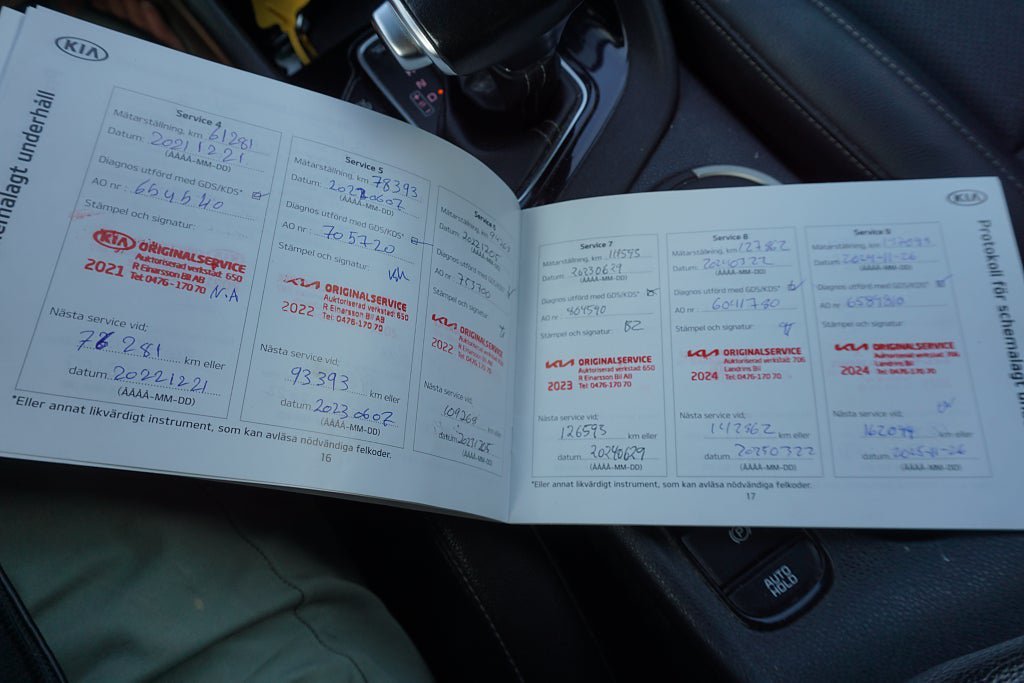 KIA
schemalagt underhåll
Service 4
Mätarställning, km 61281
Datum: 20211221
(ÅÅÅÅ-MM-DD)
Diagnos utförd med GDS/KDS*
AO nr: 654540
Stämpel och signatur:
KIA ORIGINALSERVICE
Auktoriserad verkstad: 650
R Einarsson Bil AB
2021 Tel: 0476-170 70
N.A
Nästa service vid;
76281 km eller
datum 20221221
(ÅÅÅÅ-MM-DD)
Service 5
Mätarställning, km 78393
Datum: 20220607
(ÅÅÅÅ-MM-DD)
Diagnos utförd med GDS/KDS*
AO nr: 705720
Stämpel och signatur:
KIA ORIGINALSERVICE
Auktoriserad verkstad: 650
2022 R Einarsson Bil AB
Tel: 0476-170 70
Nästa service vid;
93393 km eller
datum 20230607
(ÅÅÅÅ-MM-DD)
Service 6
Mätarställning, km
Datum: 20221205
(ÅÅÅÅ-MM-DD)
Diagnos utförd med
AO nr: 753700
Stämpel och signatur:
KIA ORIGINALSERVICE
2022
Nästa service vid;
109269 km eller
datum 20231205
(ÅÅÅÅ-MM-DD)
*Eller annat likvärdigt instrument, som kan avläsa nödvändiga felkoder.
16
KIA
Protokoll för schemalagt
Service 7
Mätarställning, km 111595
Datum: 20230629
(ÅÅÅÅ-MM-DD)
Diagnos utförd med GDS/KDS*
AO nr: 804540
Stämpel och signatur: BZ
KIA ORIGINALSERVICE
Auktoriserad verkstad: 650
R Einarsson Bil AB
2023 Tel: 0476-170 70
Nästa service vid;
126595 km eller
datum 20240629
(ÅÅÅÅ-MM-DD)
Service 8
Mätarställning, km 127862
Datum: 20240322
(ÅÅÅÅ-MM-DD)
Diagnos utförd med GDS/KDS*
AO nr: 6041780
Stämpel och signatur:
KIA ORIGINALSERVICE
Auktoriserad verkstad: 706
Landrins Bil
2024 Tel: 0476-170 70
Nästa service vid;
142862 km eller
datum 20250322
(ÅÅÅÅ-MM-DD)
Service 9
Mätarställning, km 147099
Datum: 2024-11-26
(ÅÅÅÅ-MM-DD)
Diagnos utförd med GDS/KDS*
AO nr:
Stämpel och signatur:
KIA ORIGINALSERVICE
Auktoriserad verkstad: 706
Landrins Bil
2024 Tel: 0476-170 70
Nästa service vid;
162099 km eller
datum 2025-11-26
(ÅÅÅÅ-MM-DD)
*Eller annat likvärdigt instrument, som kan avläsa nödvändiga felkoder.
17
N
D
P
AUTO
HOLD